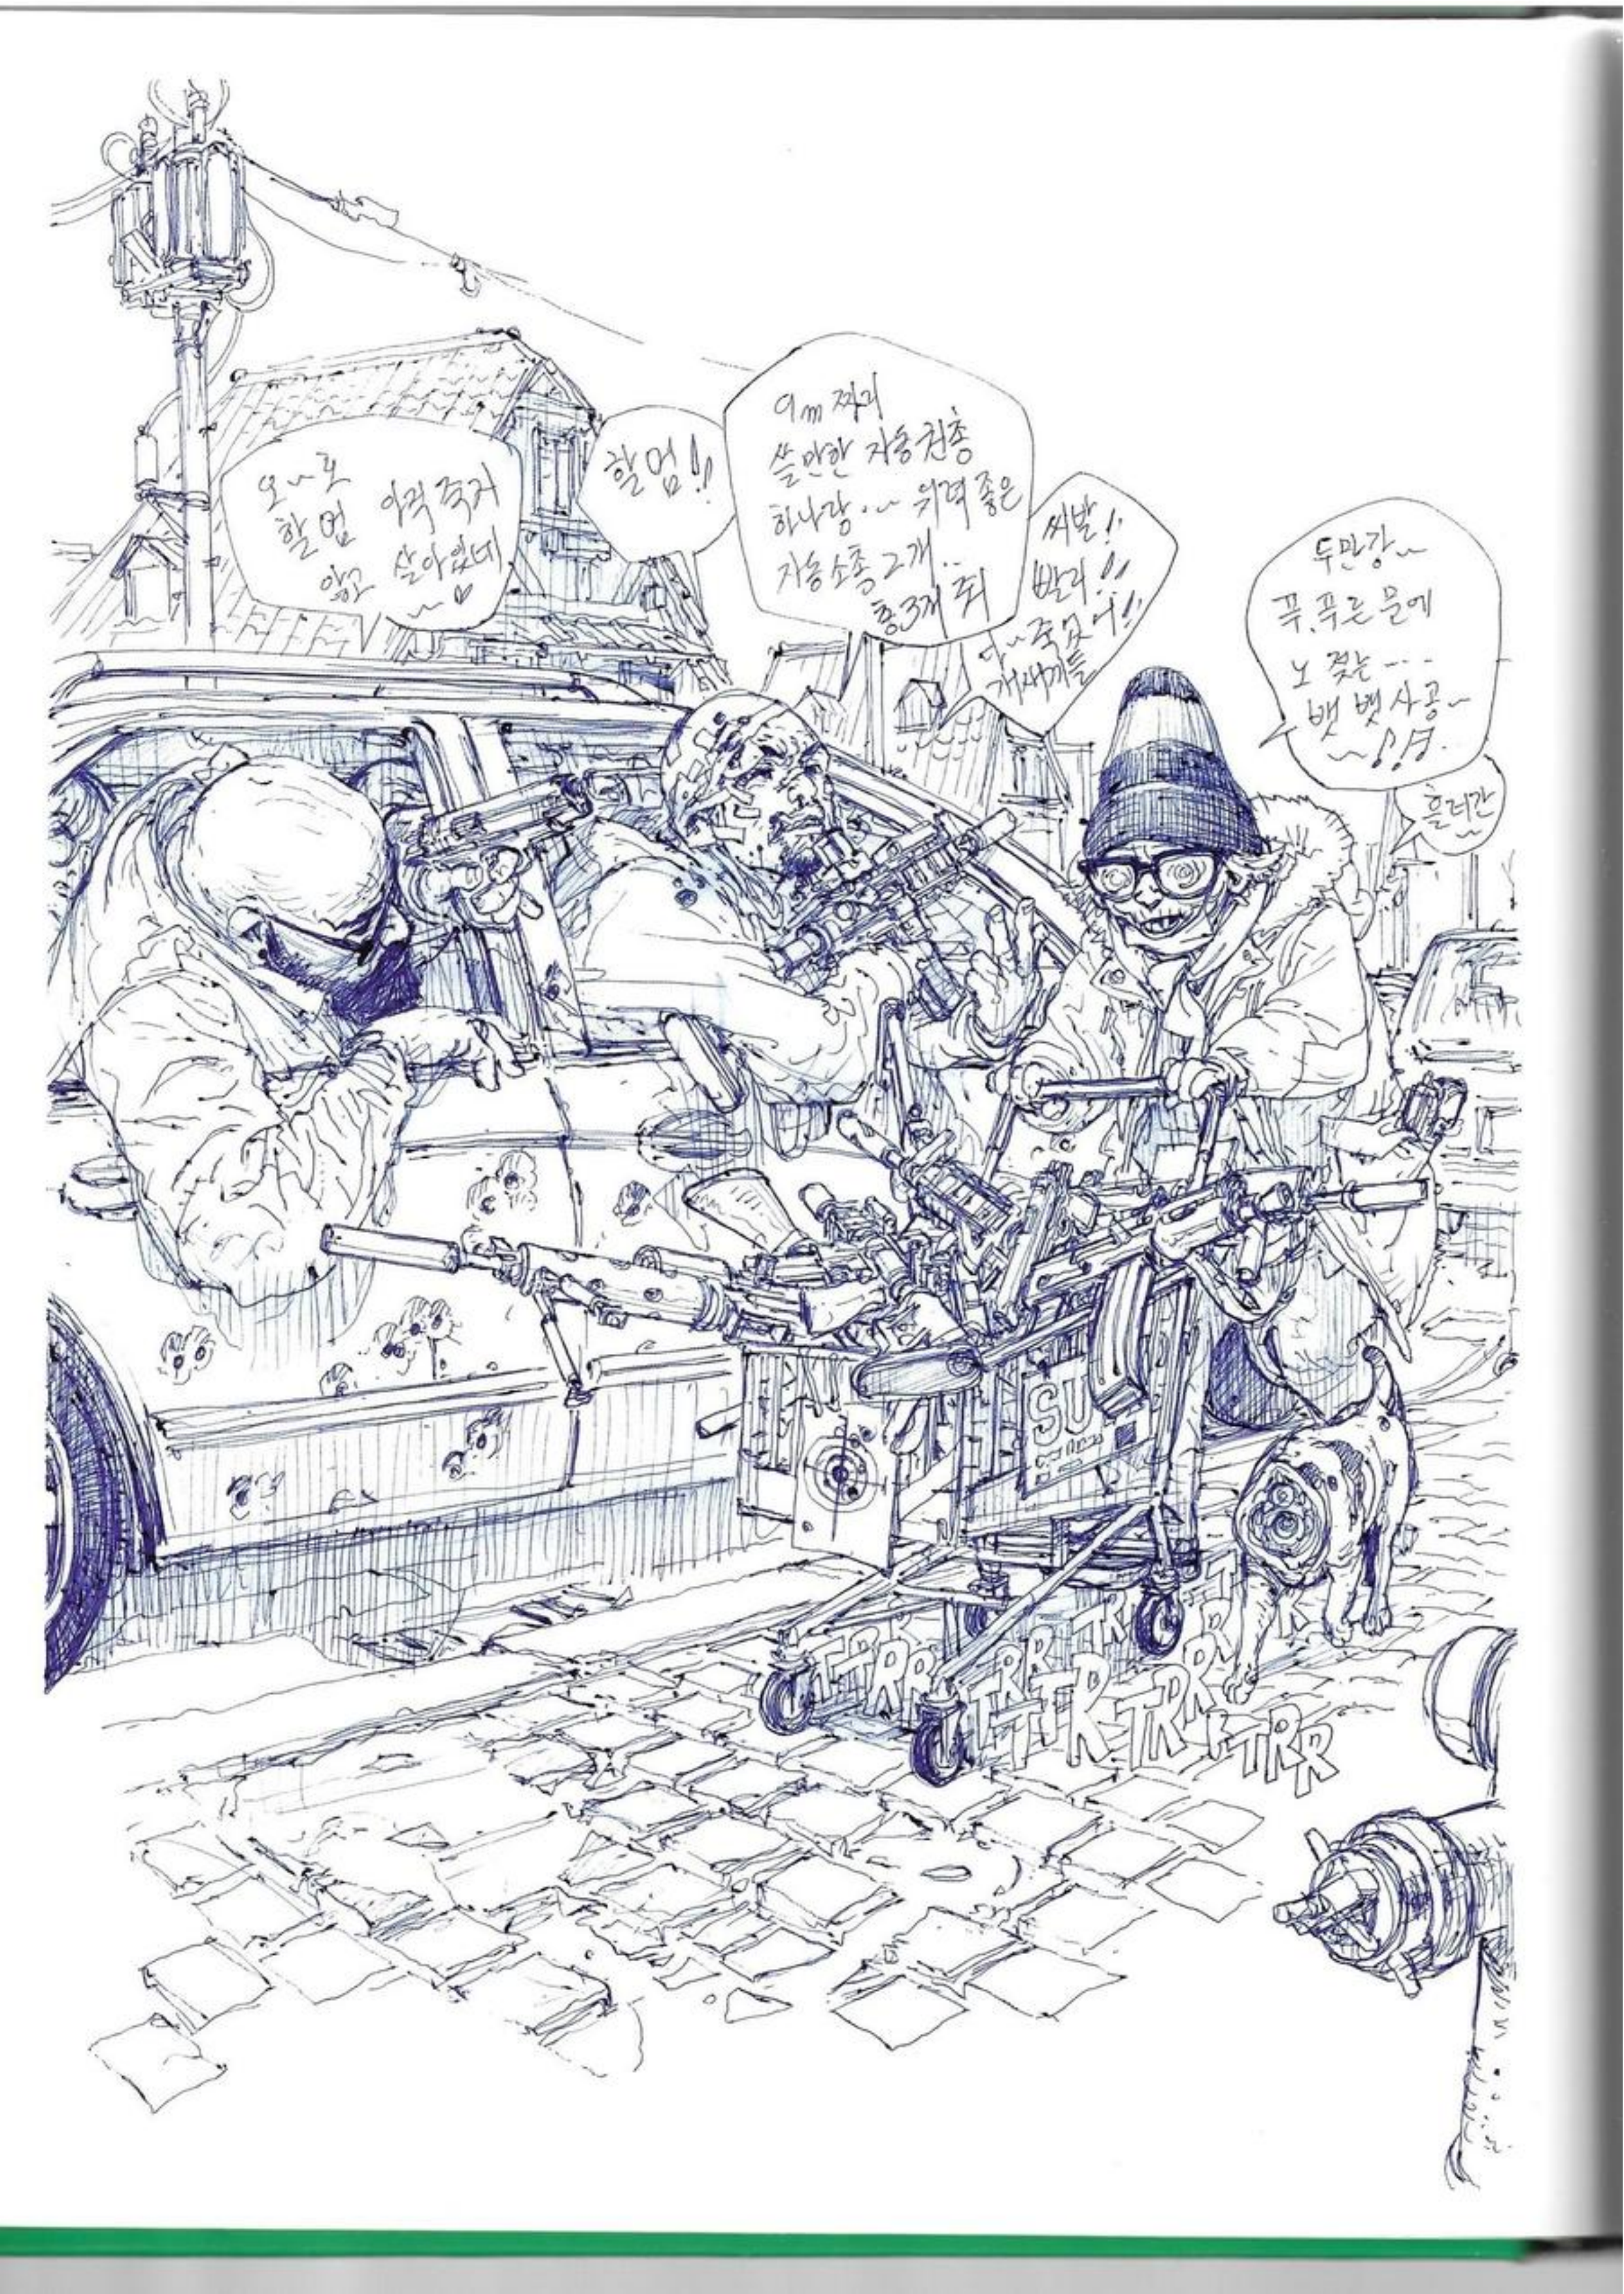 오~호
할멈 아직 죽지
않고 살아있네
할멈!!
9m 짜리
쓸만한 자동권총
하나랑.~ 위력 좋은
자동소총 2개..
총 3개 줘
씨발!!
빨리!!
다~죽었어!!
개새끼들
두만강~
푸.푸른 물에
노 젖는....
뱃 뱃사공~
흘러간
SU
TTRR
TRR
TR
TTR
TRR
TRR